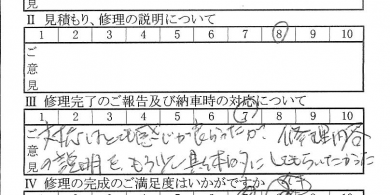 見
Ⅱ 見積もり、修理の説明について
1 2 3 4 5 6 7 8 9 10
ご意見
Ⅲ 修理完了のご報告及び納車時の対応について
1 2 3 4 5 6 7 8 9 10
ご意見
対応はとても感じが良らったが、修理内容
の説明を、もう少し具体的にしてもらいたかった
Ⅳ 修理の完成のご満足度はいかがですか
1 2 3 4 5 6 7 8 9 10